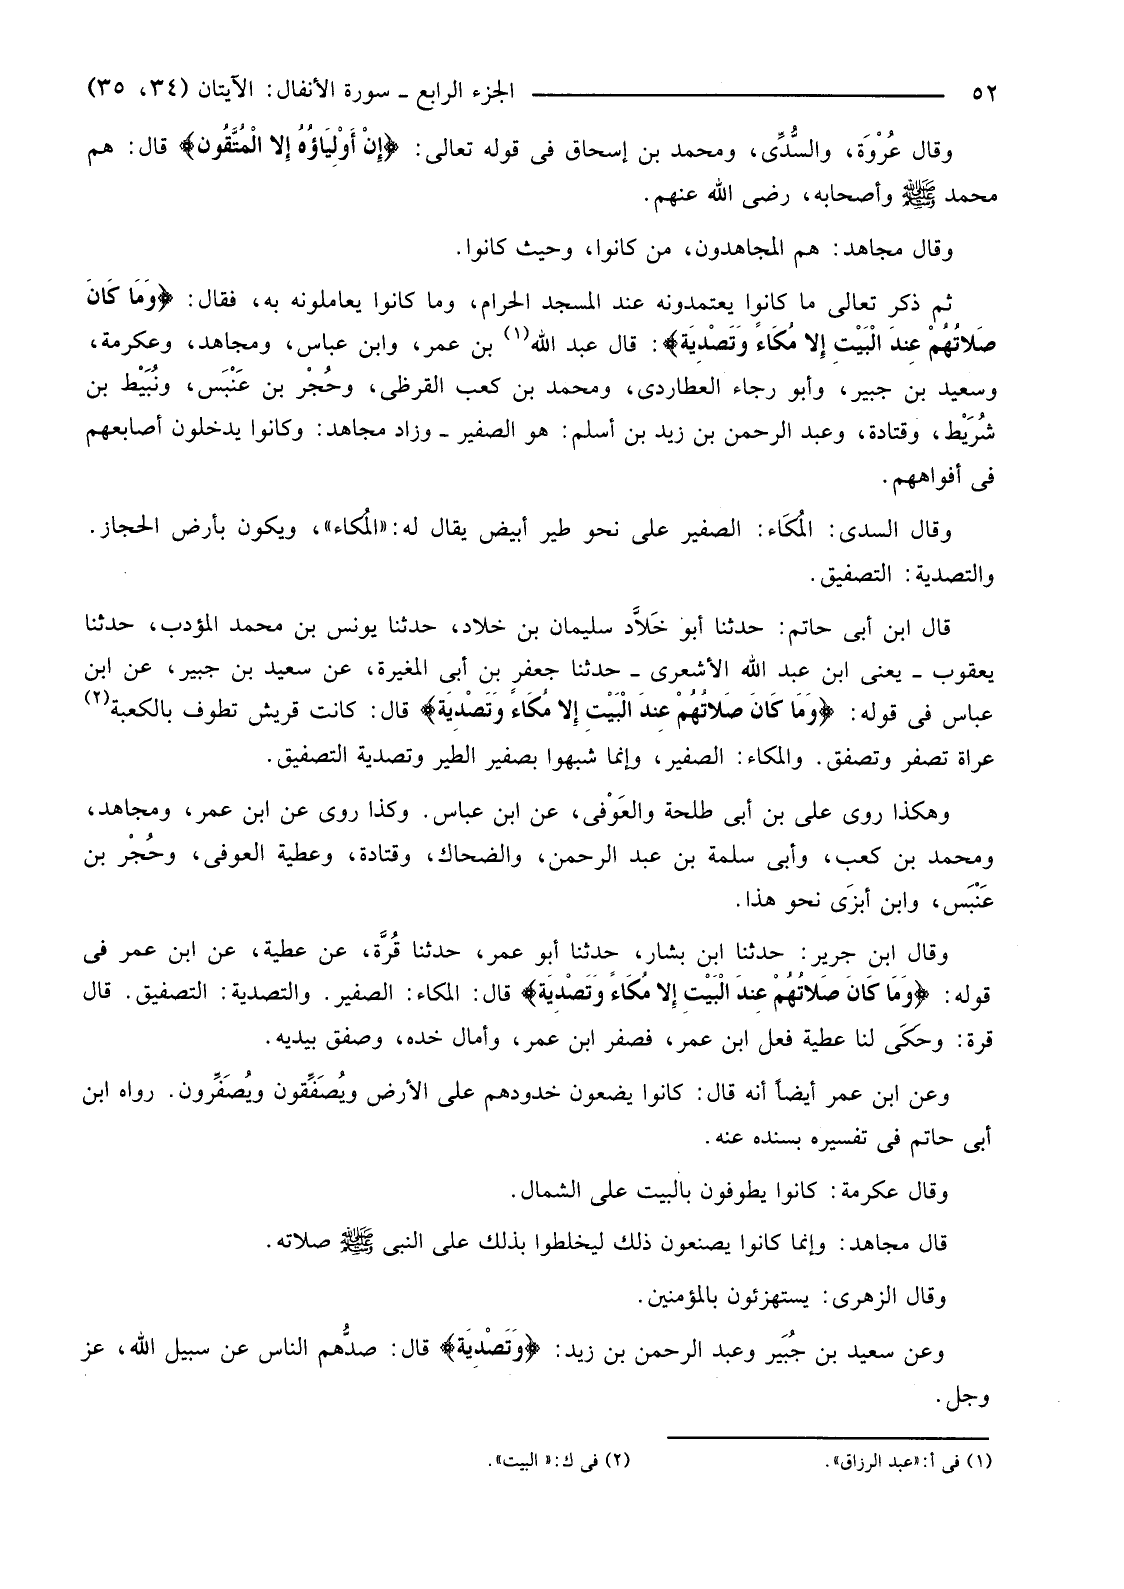 ٥٢ ــــــــــــــــــــ الجزء الرابع ـ سورة الأنفال: الآيتان (٣٤، ٣٥)
وقال عُرْوَة، والسُّدِّى، ومحمد بن إسحاق فى قوله تعالى: ﴿إِنْ أَوْلِيَاؤُهُ إِلا الْمُتَّقُون﴾ قال: هم
محمد ﷺ وأصحابه، رضى الله عنهم.
وقال مجاهد: هم المجاهدون، من كانوا، وحيث كانوا.
ثم ذكر تعالى ما كانوا يعتمدونه عند المسجد الحرام، وما كانوا يعاملونه به، فقال: ﴿وَمَا كَانَ
صَلاتُهُمْ عِندَ الْبَيْتِ إِلا مُكَاءً وَتَصْدِيَة﴾: قال عبد الله(١) بن عمر، وابن عباس، ومجاهد، وعكرمة،
وسعيد بن جبير، وأبو رجاء العطاردى، ومحمد بن كعب القرظى، وحُجْر بن عَنْبَس، ونُبَيْط بن
شُرَيْط، وقتادة، وعبد الرحمن بن زيد بن أسلم: هو الصفير ـ وزاد مجاهد: وكانوا يدخلون أصابعهم
فى أفواههم.
وقال السدى: المُكَاء: الصفير على نحو طير أبيض يقال له:«المُكاء»، ويكون بأرض الحجاز.
والتصدية: التصفيق.
قال ابن أبى حاتم: حدثنا أبو خَلاَّد سليمان بن خلاد، حدثنا يونس بن محمد المؤدب، حدثنا
يعقوب ـ يعنى ابن عبد الله الأشعرى ـ حدثنا جعفر بن أبى المغيرة، عن سعيد بن جبير، عن ابن
عباس فى قوله: ﴿وَمَا كَانَ صَلاتُهُمْ عِندَ الْبَيْتِ إِلا مُكَاءً وَتَصْدِيَة﴾ قال: كانت قريش تطوف بالكعبة(٢)
عراة تصفر وتصفق. والمكاء: الصفير، وإنما شبهوا بصفير الطير وتصدية التصفيق.
وهكذا روى على بن أبى طلحة والعَوْفى، عن ابن عباس. وكذا روى عن ابن عمر، ومجاهد،
ومحمد بن كعب، وأبى سلمة بن عبد الرحمن، والضحاك، وقتادة، وعطية العوفى، وحُجْر بن
عَنْبَس، وابن أبزَى نحو هذا.
وقال ابن جرير: حدثنا ابن بشار، حدثنا أبو عمر، حدثنا قُرَّة، عن عطية، عن ابن عمر فى
قوله: ﴿وَمَا كَانَ صَلاتُهُمْ عِندَ الْبَيْتِ إِلا مُكَاءً وَتَصْدِيَة﴾ قال: المكاء: الصفير. والتصدية: التصفيق. قال
قرة: وحكَى لنا عطية فعل ابن عمر، فصفر ابن عمر، وأمال خده، وصفق بيديه.
وعن ابن عمر أيضاً أنه قال: كانوا يضعون خدودهم على الأرض ويُصَفِّقون ويُصَفِّرون. رواه ابن
أبى حاتم فى تفسيره بسنده عنه.
وقال عكرمة: كانوا يطوفون بالبيت على الشمال.
قال مجاهد: وإنما كانوا يصنعون ذلك ليخلطوا بذلك على النبى ﷺ صلاته.
وقال الزهرى: يستهزئون بالمؤمنين.
وعن سعيد بن جُبَير وعبد الرحمن بن زيد: ﴿وَتَصْدِيَة﴾ قال: صدُّهم الناس عن سبيل الله، عز
وجل.
(١) فى أ:«عبد الرزاق». (٢) فى ك:« البيت».